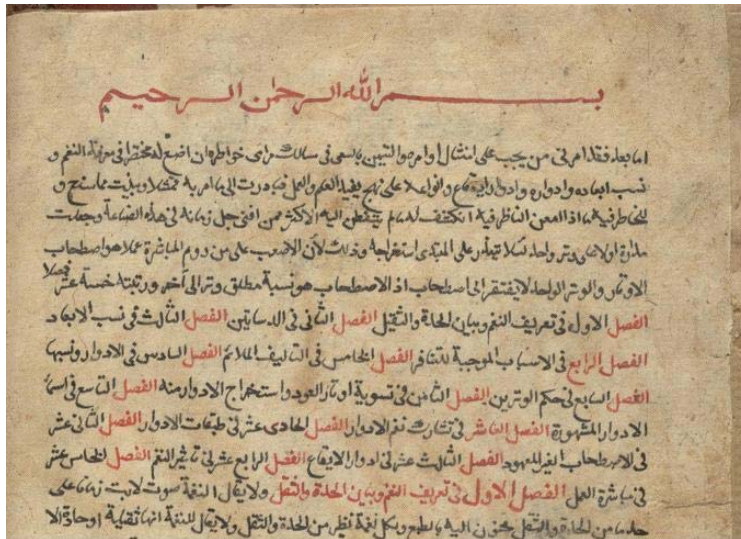 بسم الله الرحمن الرحيم
اما بعد فقد امرنى من يجب على امتثال اوامره والتيمن بالسعى فى مسالك مراى خواطره ان اضع له مختصرا فى معرفة النغم و
نسب ابعاده وادواره وادوار الايقاع وانواعه على نهج يفيد العلم والعمل فبادرت الى ما امر به ممتثلا وبينت مما سنح و
للخاطر فيه ما اذا امعن الناظر فيه انكشف له ما لم يتفطن اليه الاكثر ممن افنى جل زمانه فى هذه الصناعة وجعلت
مداره اولا على وتر واحد لئلا يتعذر على المبتدى استخراجه وذلك لأن الاصعب على من يروم المباشرة عملا هو اصطحاب
الاوتار والوتر الواحد لا يفتقر الى اصطحاب اذ الاصطحاب هو نسبة مطلق وتر الى آخر ورتبته خمسة عشر فصلا
الفصل الاول فى تعريف النغم وبيان الحدة والثقل الفصل الثانى فى الدساتين الفصل الثالث فى نسب الابعاد
الفصل الرابع فى الاسباب الموجبة للتنافر الفصل الخامس فى التاليف الملائم الفصل السادس فى الادوار ونسبها
الفصل السابع فى حكم الوترين الفصل الثامن فى تسوية اوتار العود واستخراج الادوار منه الفصل التاسع فى اسماء
الادوار المشهورة الفصل العاشر فى تشارك نغم الادوار الفصل الحادى عشر فى طبقات الادوار الفصل الثانى عشر
فى الاصطحاب الغير المعهود الفصل الثالث عشر فى ادوار الايقاع الفصل الرابع عشر فى تاثير النغم الفصل الخامس عشر
فى مباشرة العمل الفصل الاول فى تعريف النغم وبيان الحدة والثقل ولا يقال النغمة صوت لابث زمانا على
حد ما من الحدة والثقل محنون اليه بالطبع وبكل نغمة نظير من الحدة والثقل ولا يقال للنغمة انها ثقيلة او حادة الا